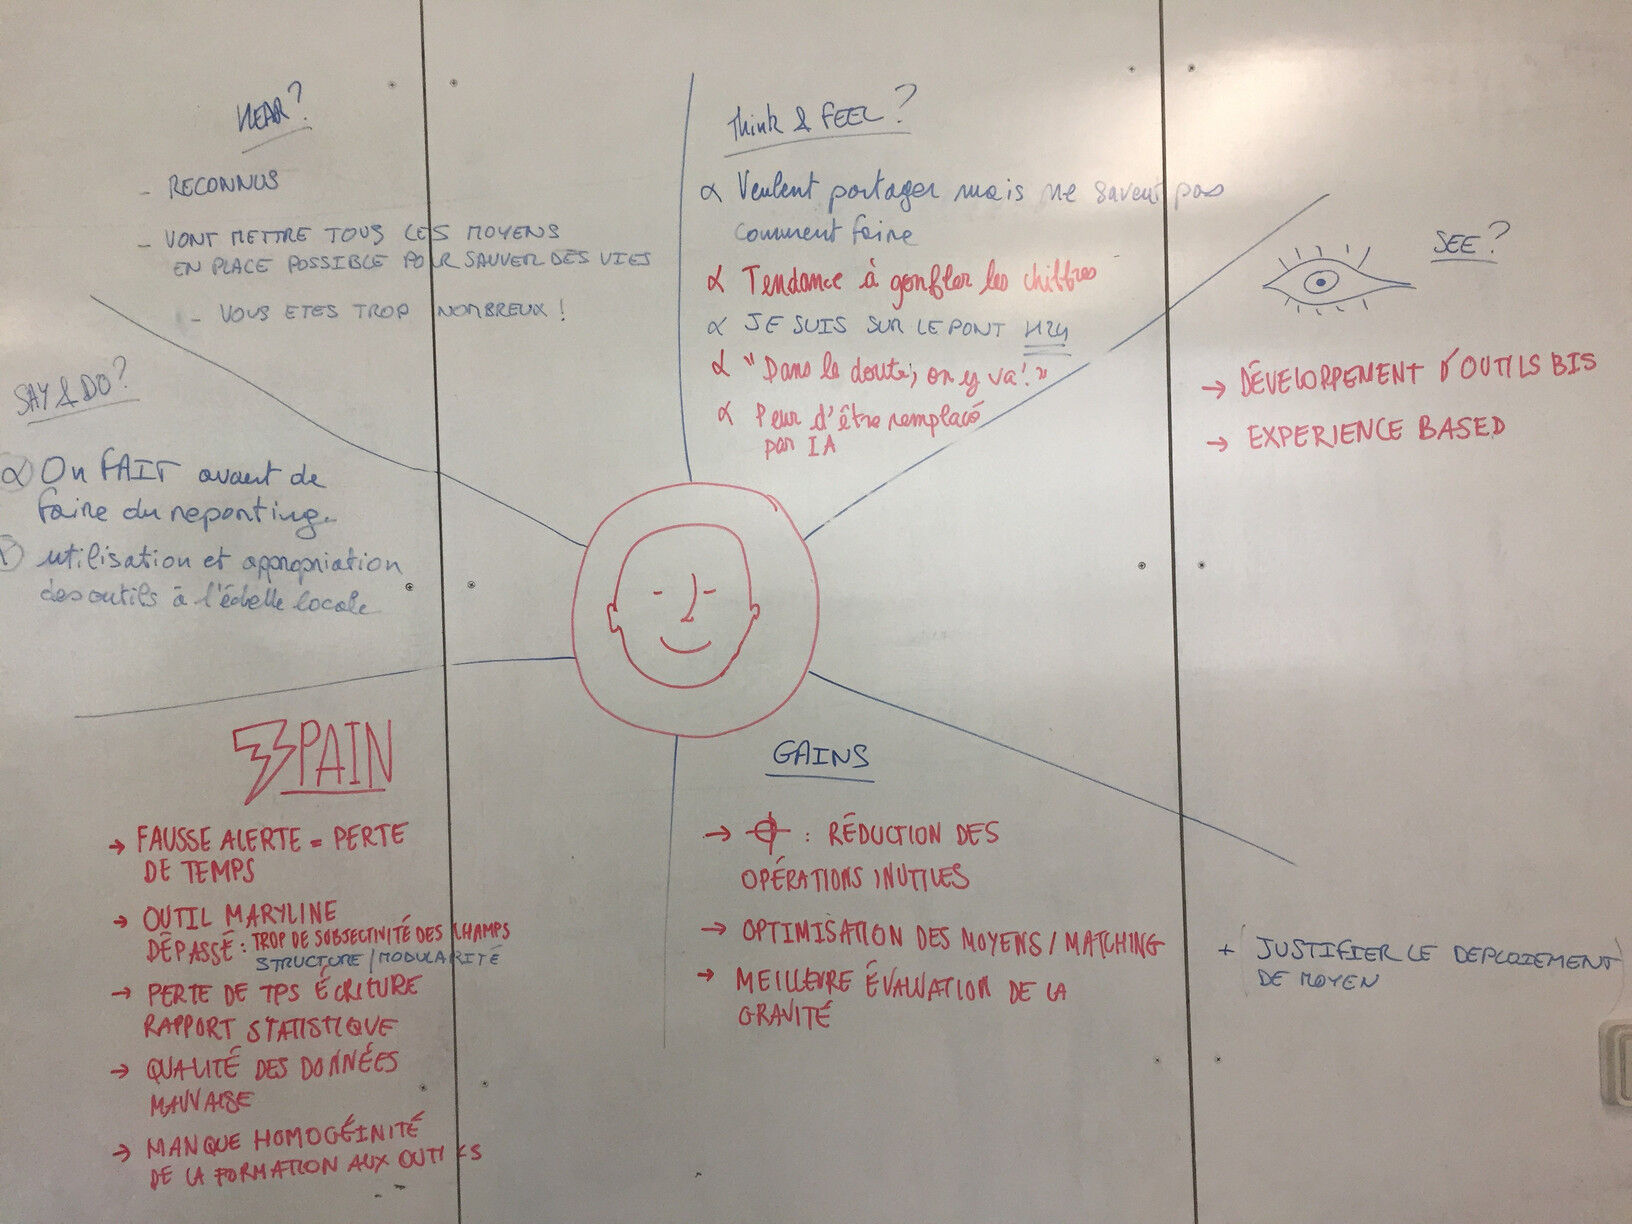 HEAR?
- RECONNUS
- VONT METTRE TOUS LES MOYENS
EN PLACE POSSIBLE POUR SAUVER DES VIES
- VOUS ETES TROP NOMBREUX !
Think & FEEL?
α Veulent partager mais ne savent pas
comment faire
α Tendance à gonfler les chiffres
α JE SUIS SUR LE PONT H24
α "Dans le doute, on y va!"
α Peur d'être remplacé
par IA
SEE?
→ DÉVELOPPEMENT d'OUTILS BIS
→ EXPERIENCE BASED
SAY & DO?
α On FAIT avant de
faire du reporting.
utilisation et appropriation
des outils à l'échelle locale
PAIN
→ FAUSSE ALERTE = PERTE
DE TEMPS
→ OUTIL MARYLINE
DÉPASSÉ : TROP DE SUBJECTIVITÉ DES CHAMPS
STRUCTURE / MODULARITÉ
→ PERTE DE TPS ÉCRITURE
RAPPORT STATISTIQUE
→ QUALITÉ DES DONNÉES
MAUVAISE
→ MANQUE HOMOGÉINITÉ
DE LA FORMATION AUX OUTILS
GAINS
→ : RÉDUCTION DES
OPÉRATIONS INUTILES
→ OPTIMISATION DES MOYENS / MATCHING
→ MEILLEURE ÉVALUATION DE LA
GRAVITÉ
+ (JUSTIFIER LE DEPLOIEMENT
DE MOYEN)